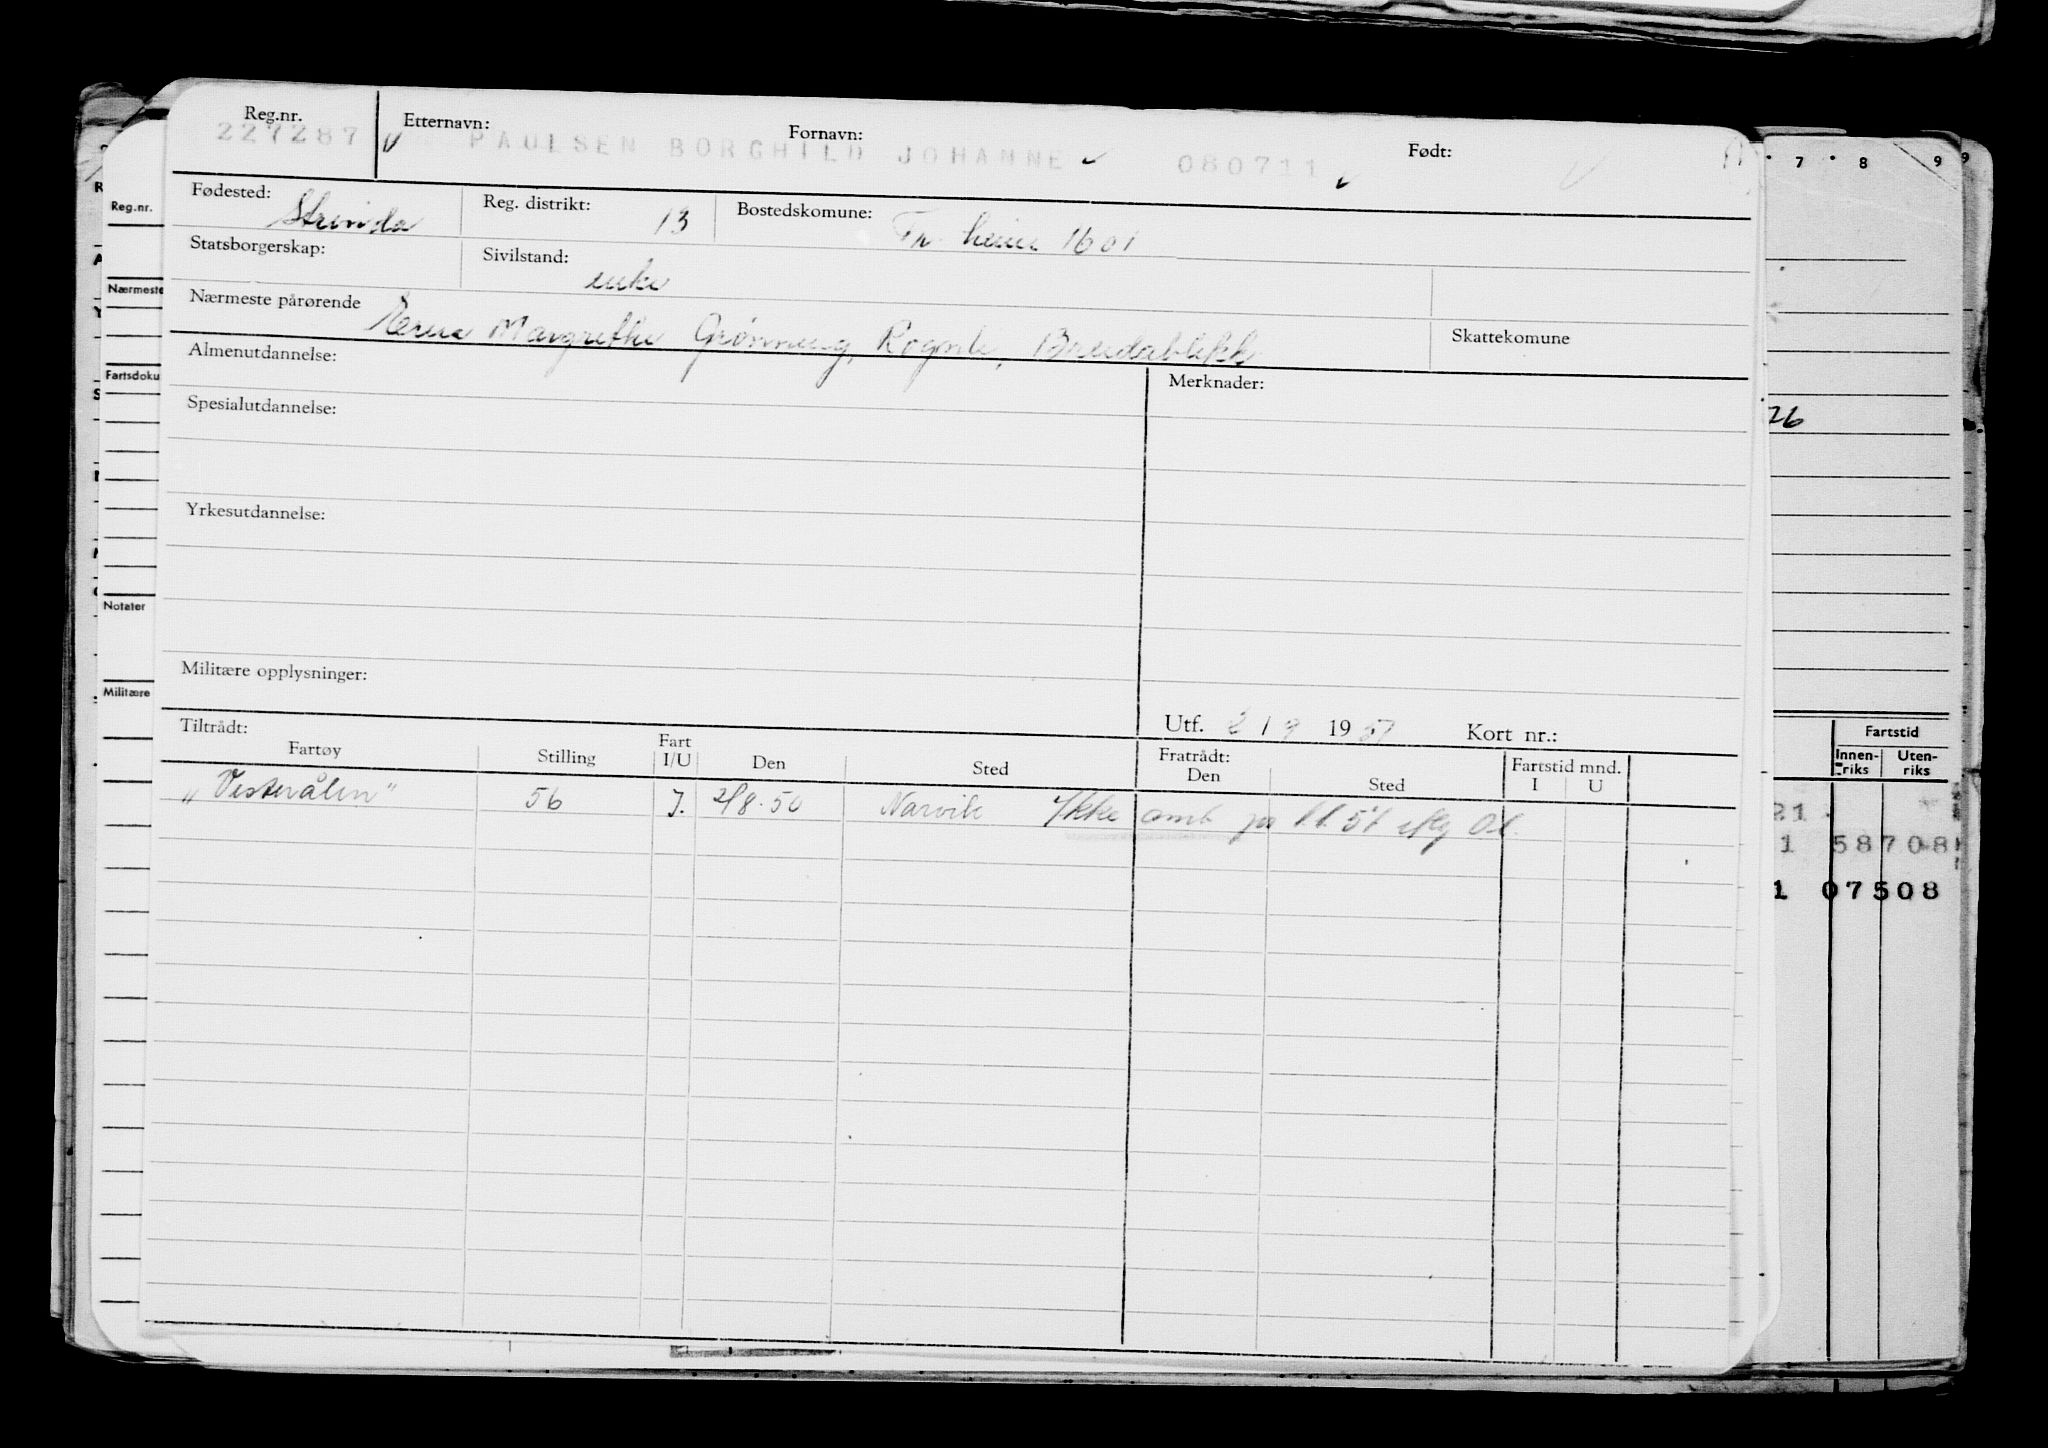 Reg.nr. Etternavn: Fornavn: Født:
227287 PAULSEN BORGHILD JOHANNE 080711
Fødested: Strinda Reg. distrikt: 13 Bostedskomune: Tr.heim 1601
Statsborgerskap: Sivilstand: enke
Nærmeste pårørende Margrethe Grønning, Rognli, Breidablikk Skattekomune
Almenutdannelse: Merknader:
Spesialutdannelse:
Yrkesutdannelse:
Militære opplysninger:
Utf. 2/9 1951 Kort nr.:
Tiltrådt: Fratrådt:
Fartøy Stilling Fart I/U Den Sted Den Sted Fartstid mnd. I U
"Vesterålen" 56 J. 2/8.50 Narvik Ikke omb pr 1.1.51
7 8 9 9
R
Reg.nr.
Nærmeste
Fartsdoku
Notater
Militære
26
Fartstid
Innen-riks Uten-riks
21
1 58708
1 07508